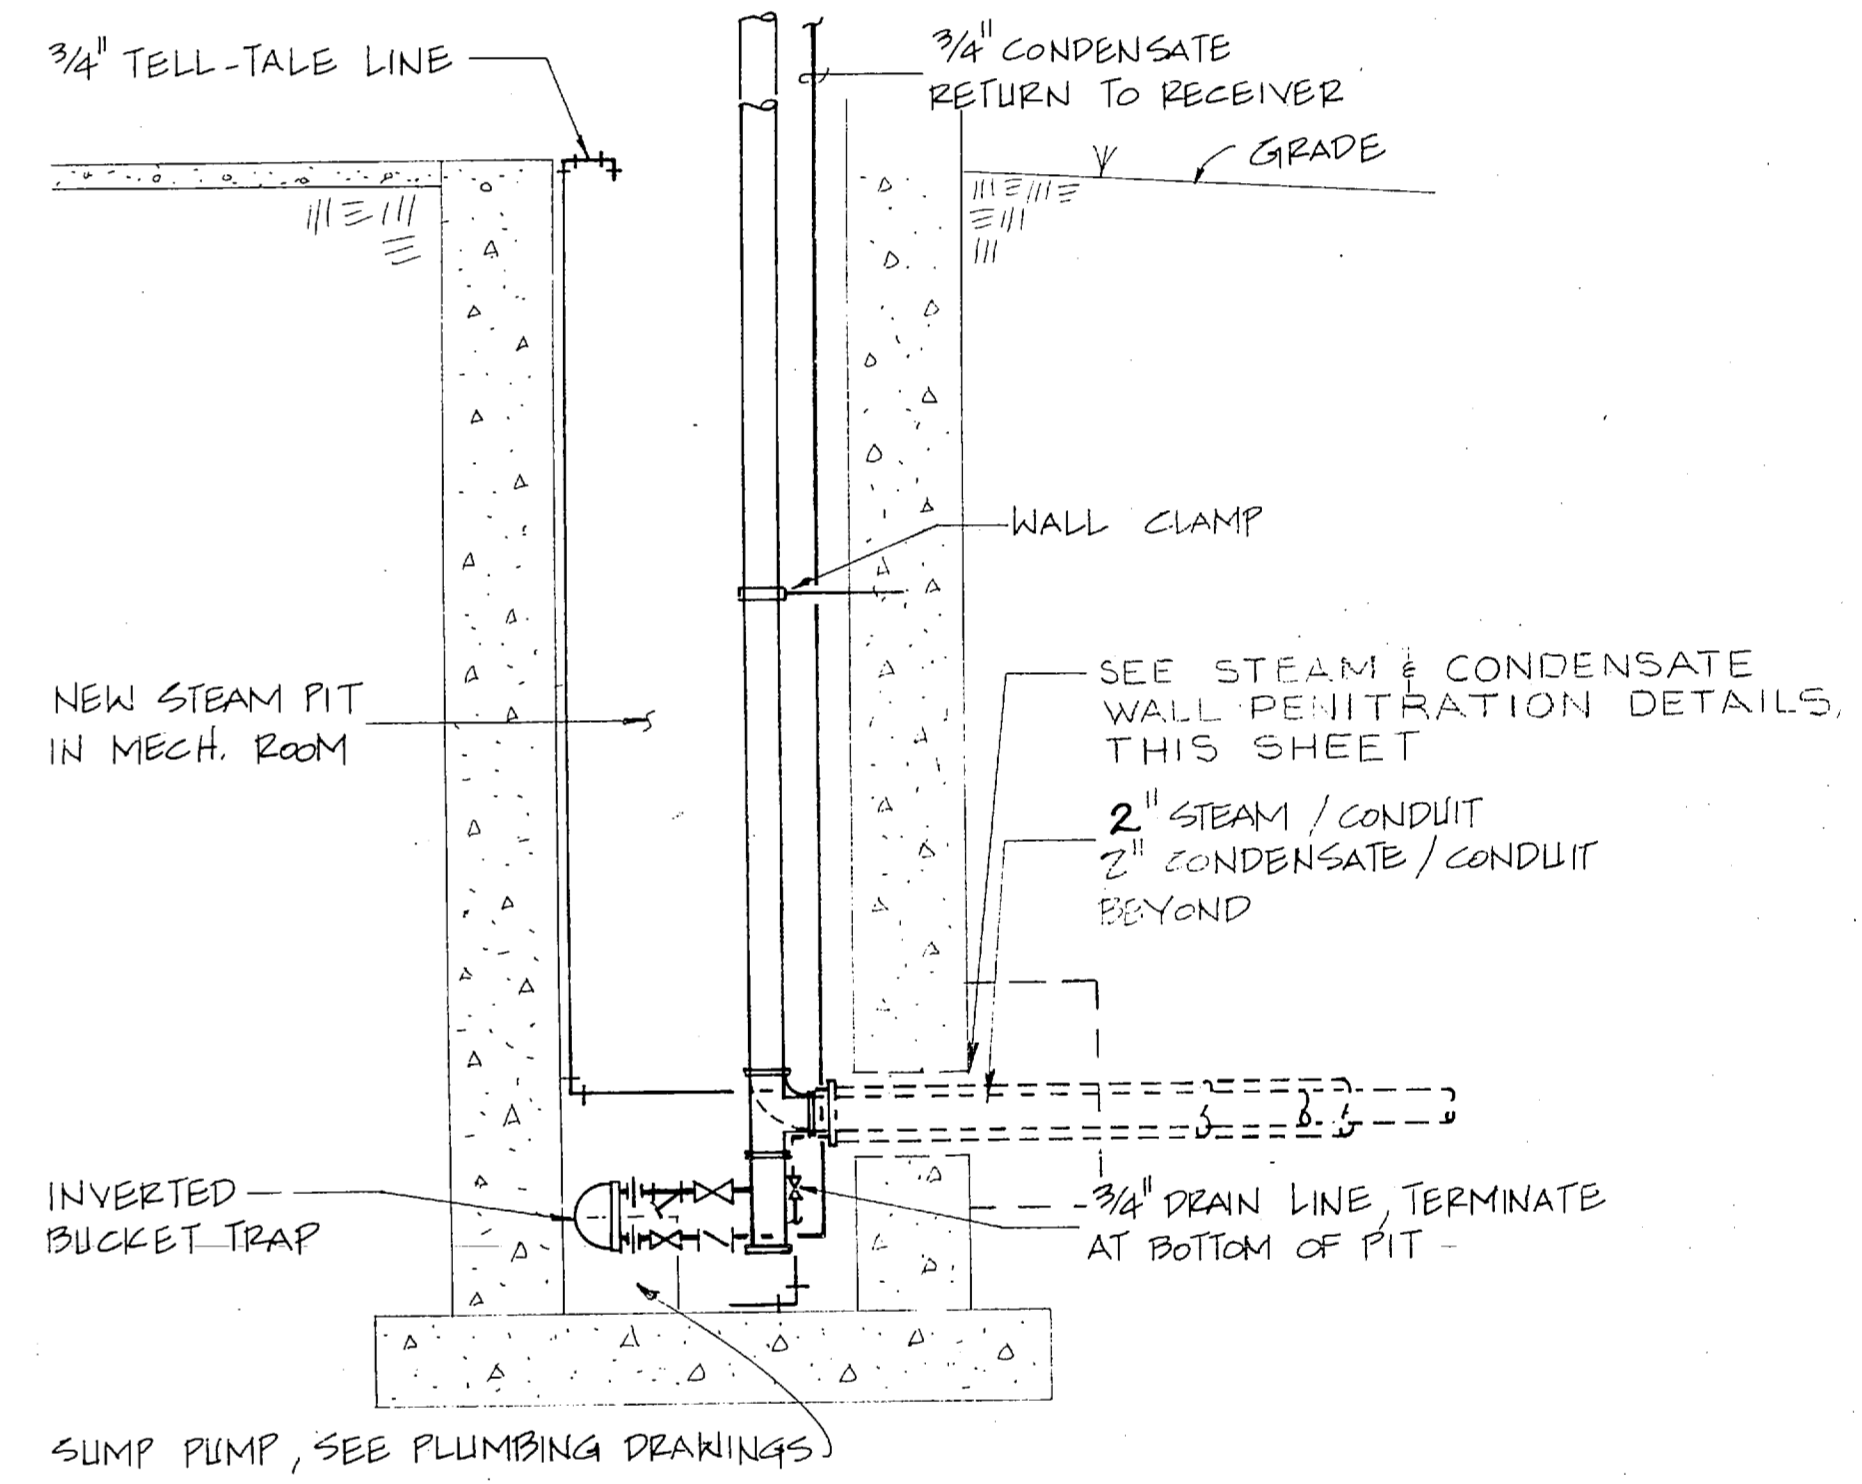 3/4" TELL-TALE LINE
3/4" CONDENSATE
RETURN TO RECEIVER
GRADE
WALL CLAMP
NEW STEAM PIT
IN MECH. ROOM
SEE STEAM & CONDENSATE
WALL PENITRATION DETAILS,
THIS SHEET
2" STEAM / CONDUIT
2" CONDENSATE / CONDUIT
BEYOND
INVERTED
BUCKET TRAP
3/4" DRAIN LINE, TERMINATE
AT BOTTOM OF PIT
SUMP PUMP, SEE PLUMBING DRAWINGS